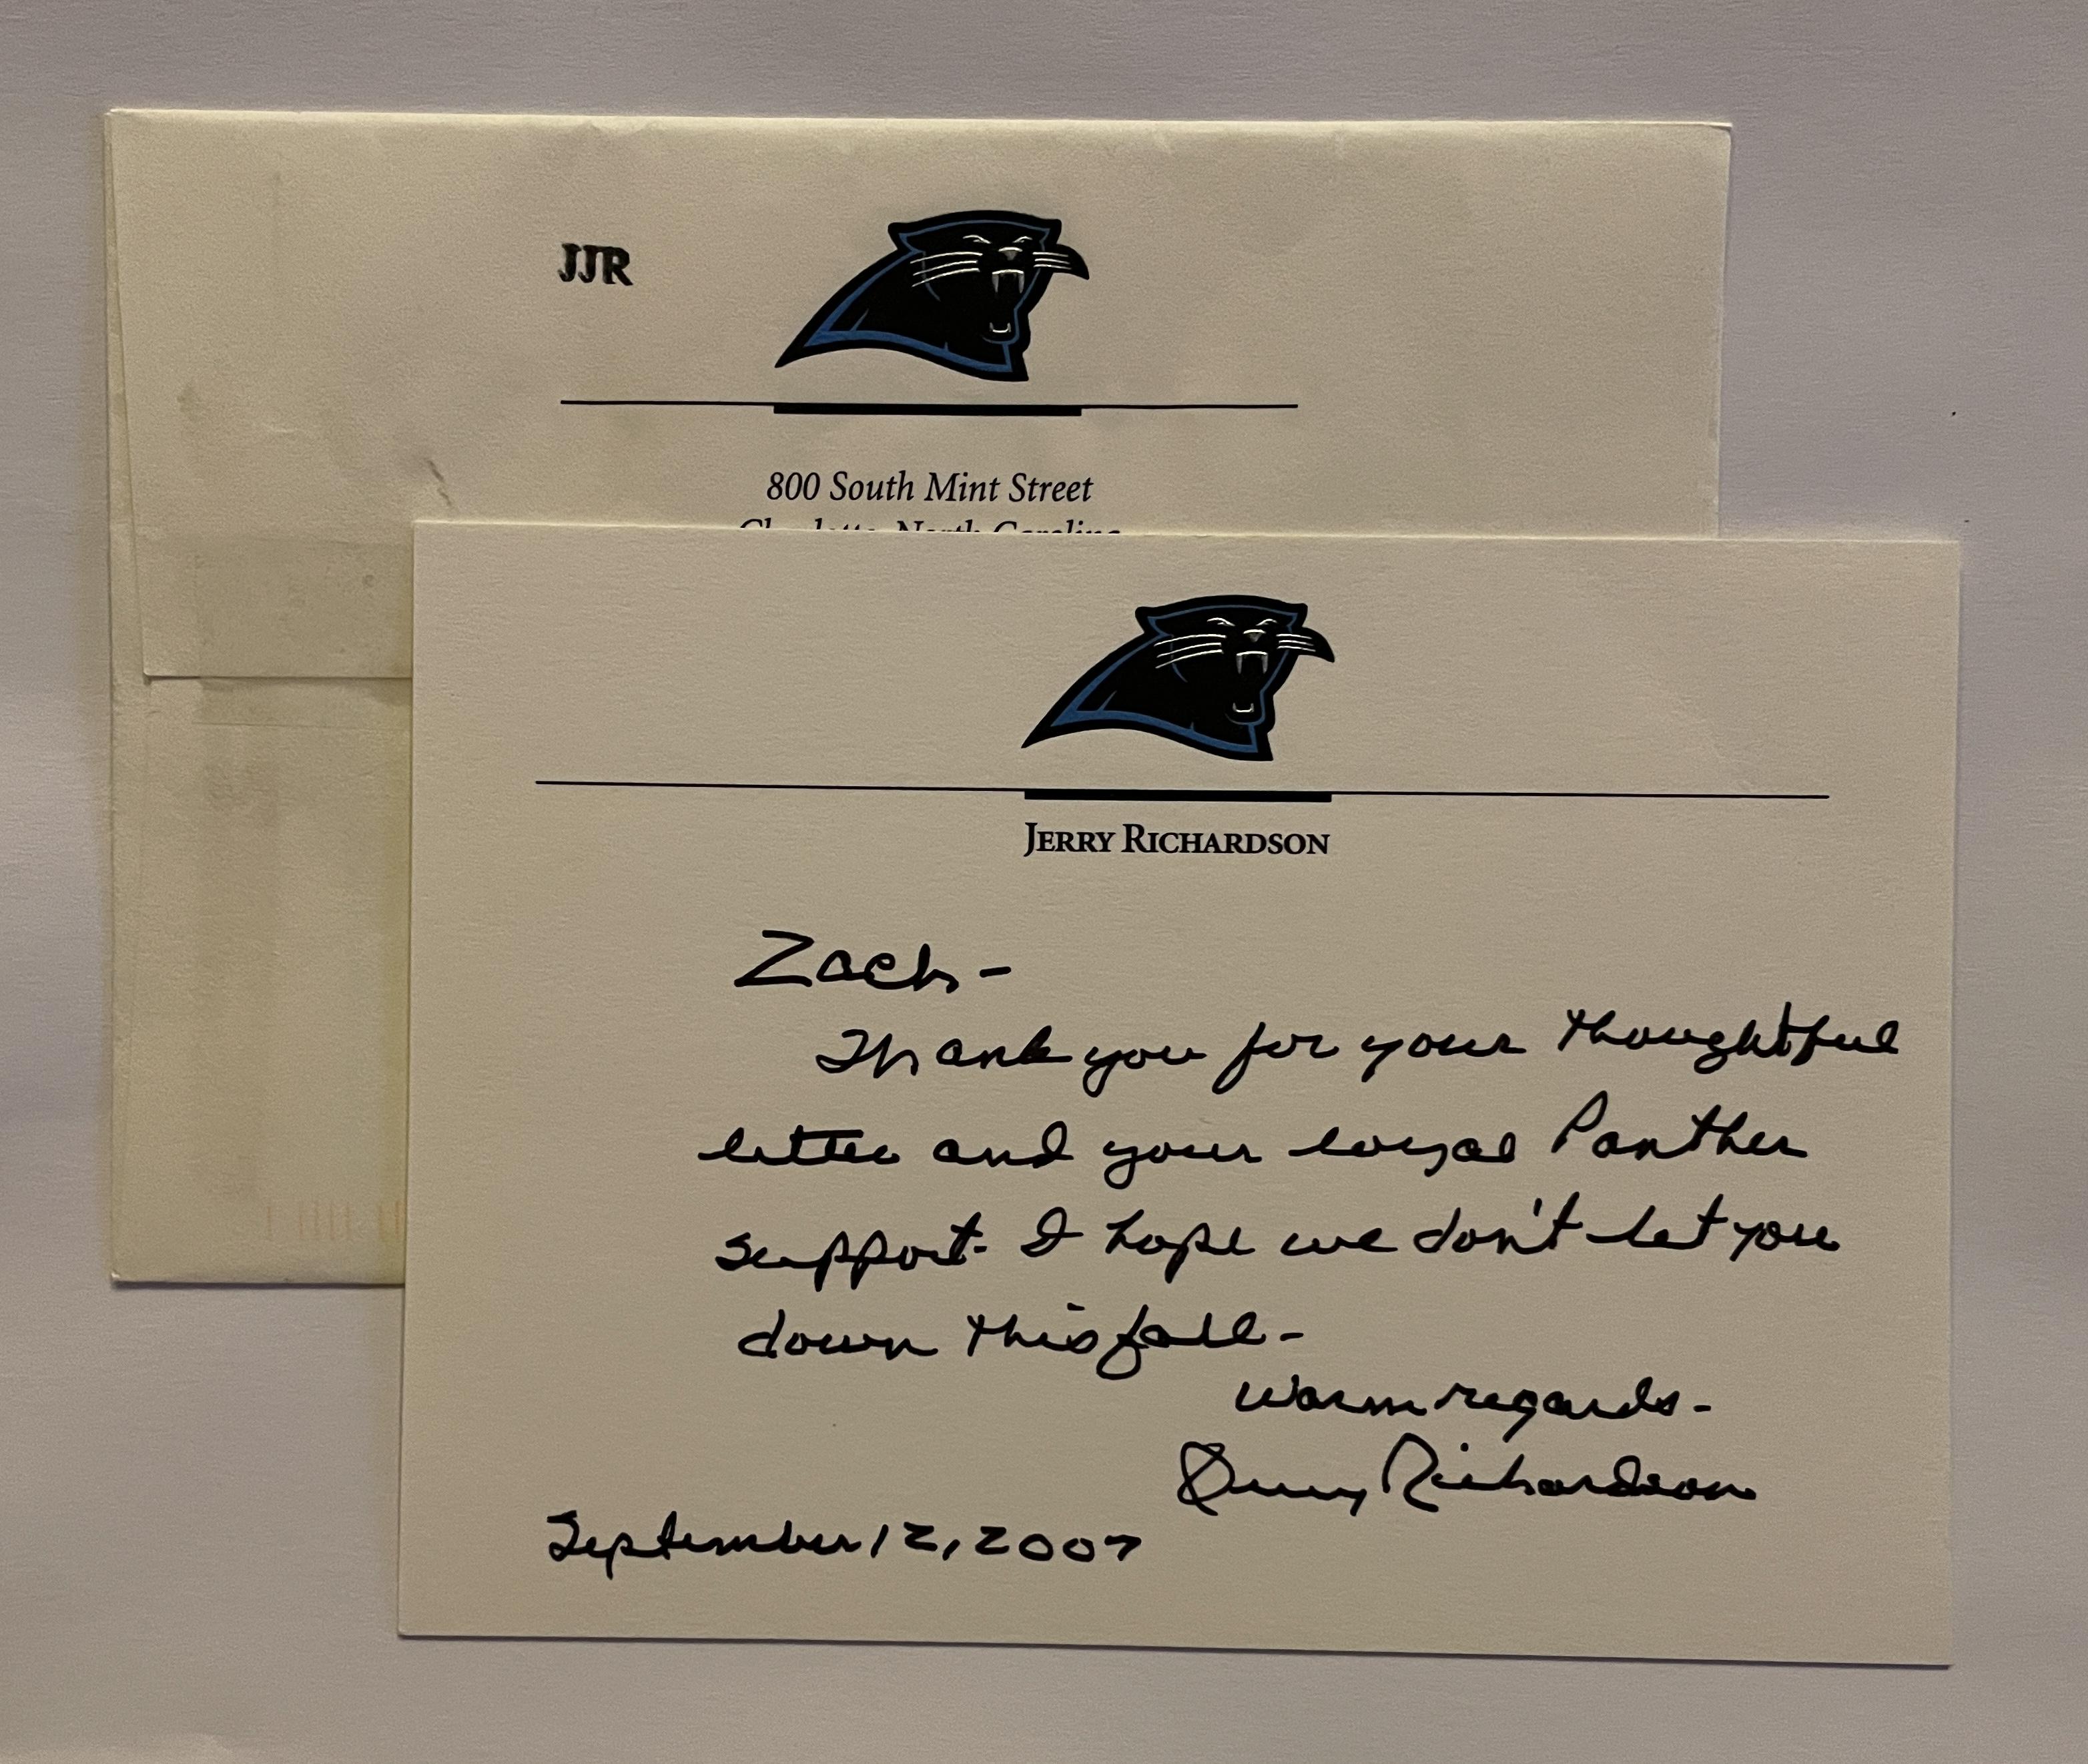 JJR
800 South Mint Street
Charlotte, North Carolina
JERRY RICHARDSON
Zach-
Thank you for your thoughtful
letter and your loyal Panther
support. I hope we don't let you
down this fall-
Warm regards-
Jerry Richardson
September 12, 2007